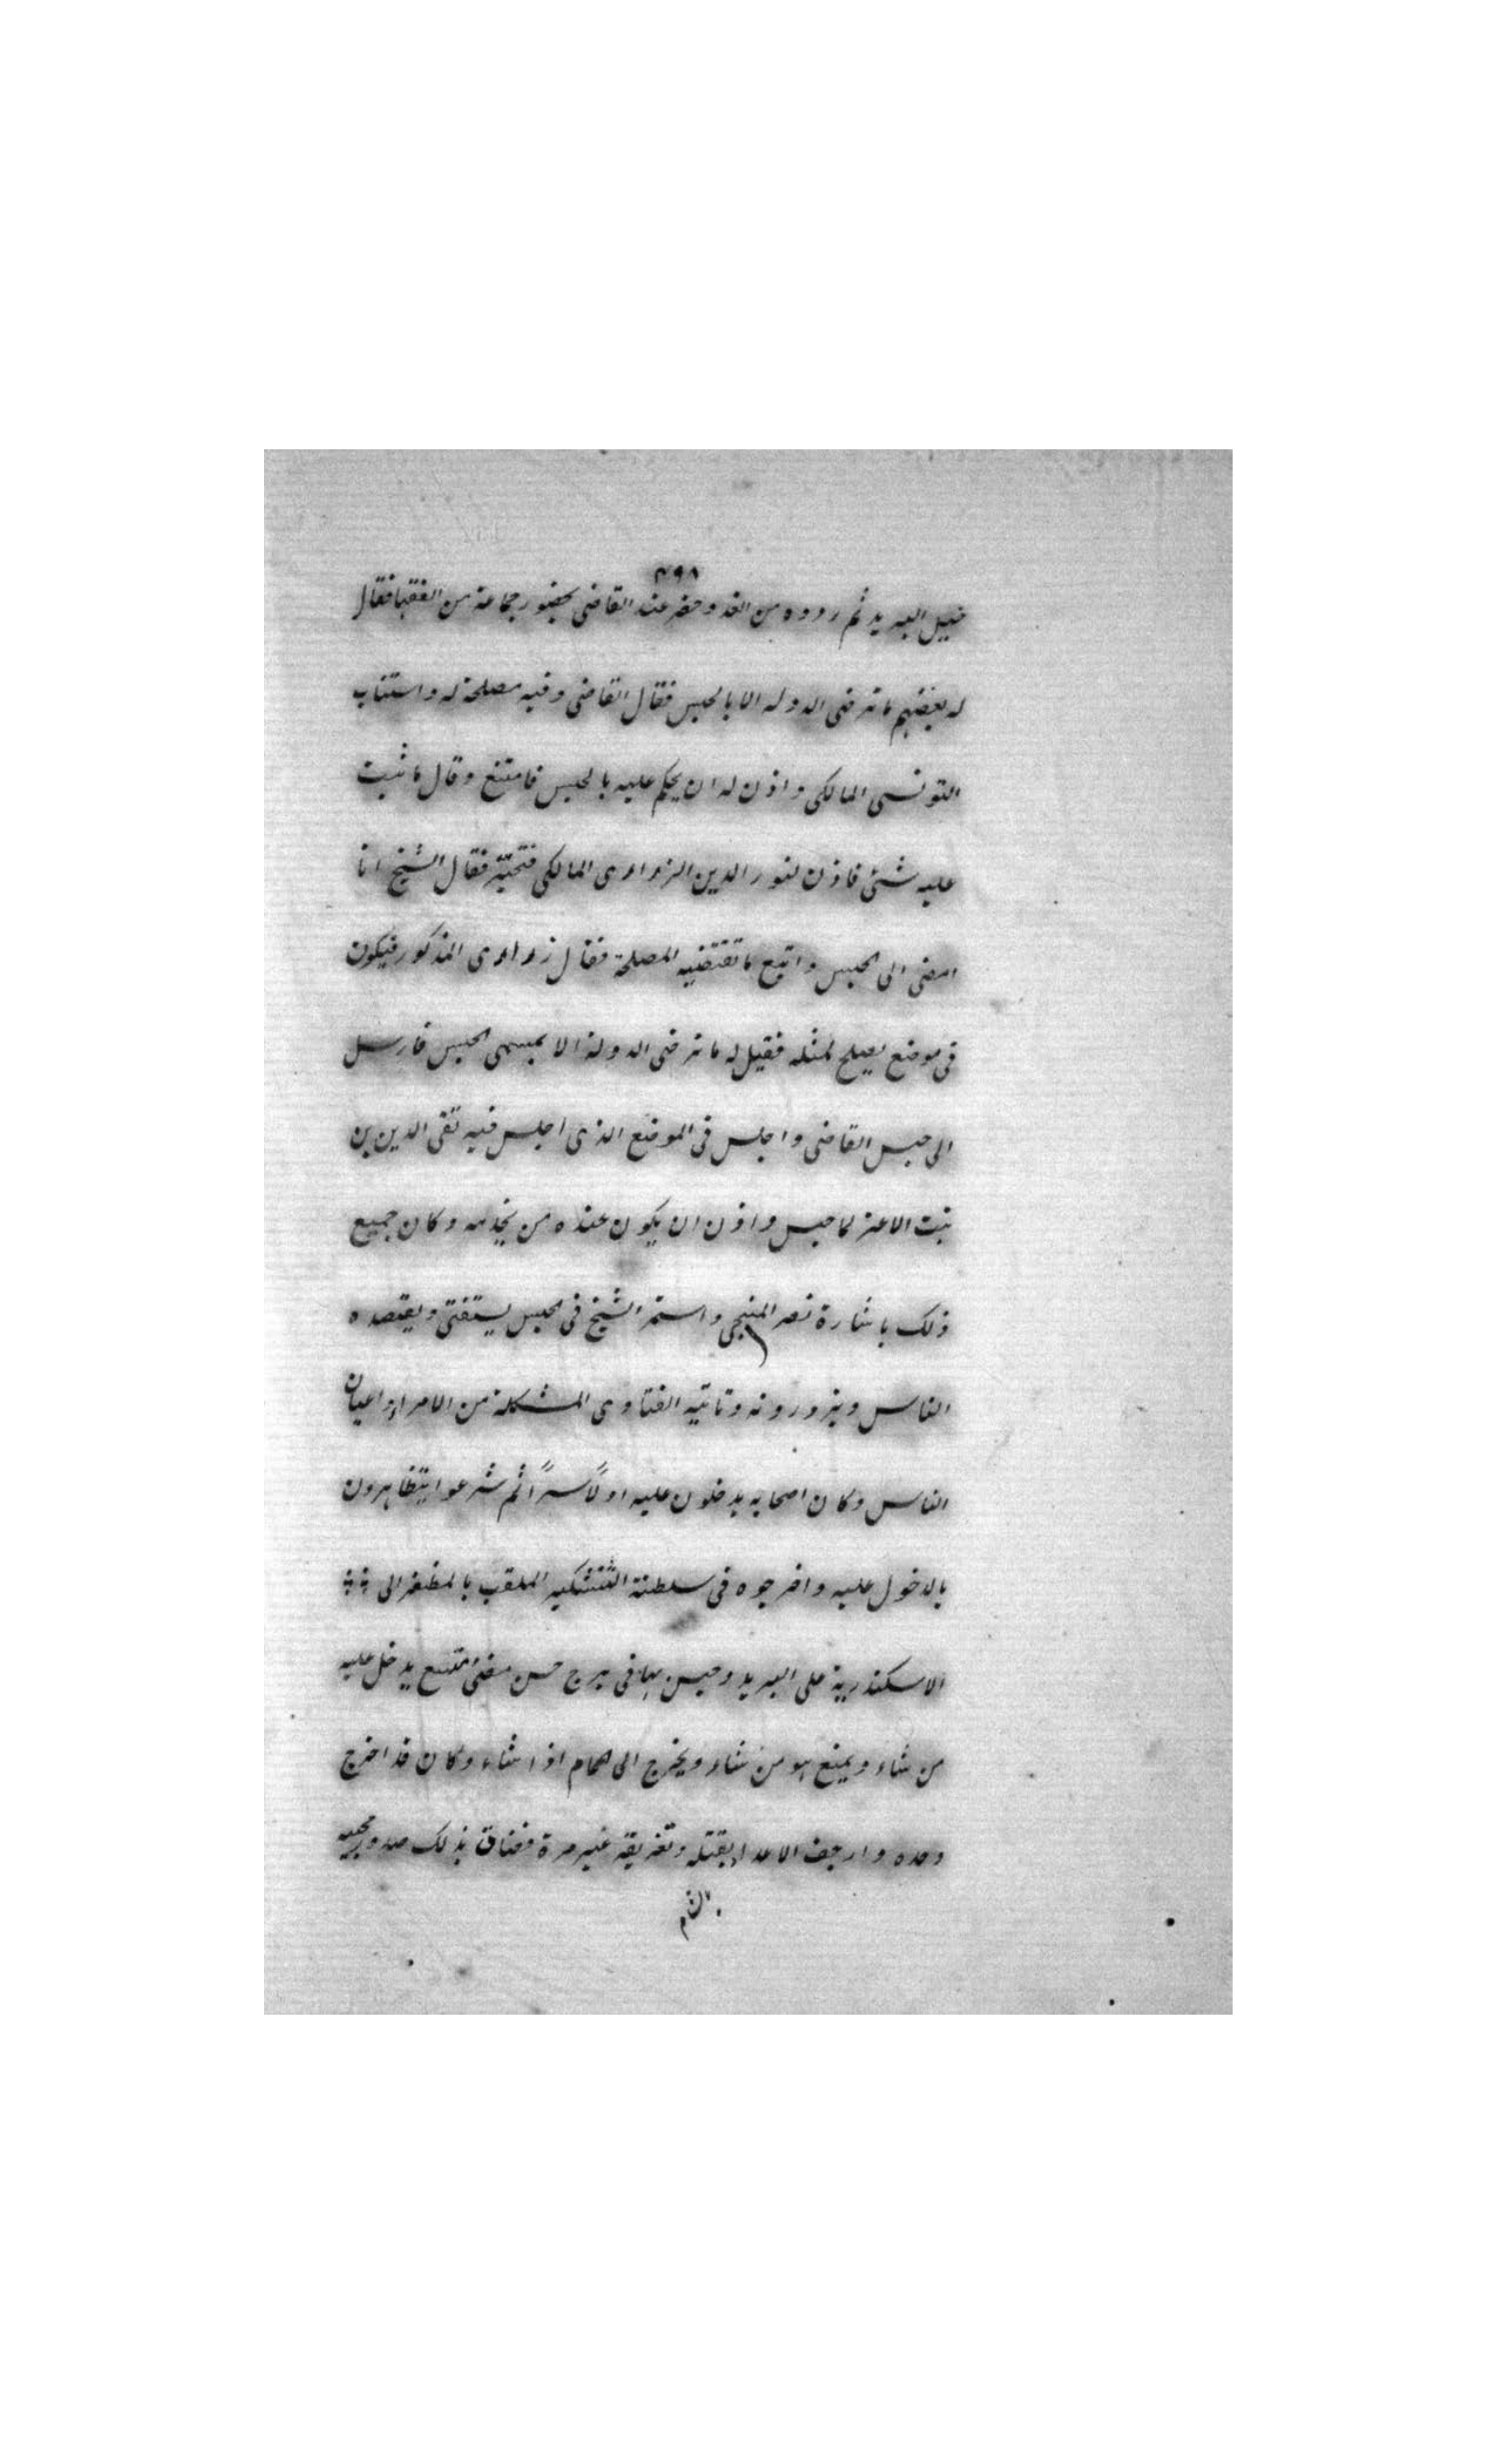 ٣٩٨
خيل البريد ثم ردوه من الغد وحضر عند القاضى بحضور جماعة من الفقها فقال
له بعضهم ما ترضى الدوله الا بالحبس فقال القاضى وفيه مصلحة له واستناب
التونسى المالكى واذن له ان يحكم عليه بالحبس فامتنع وقال ما ثبت
عليه شئ فاذن لنور الدين الزواوى المالكى فتحير فقال الشيخ انا
امضى الى الحبس واتبع ما تقتضيه المصلحة فقال زواوى المذكور فيكون
فى موضع يصلح لمثله فقيل له ما ترضى الدولة الا بمسمى الحبس فارسل
الى حبس القاضى واجلس فى الموضع الذى اجلس فيه تقى الدين بن
بنت الاعز لما حبس واذن ان يكون عنده من يخدمه وكان جميع
ذلك باشارة نصر المنبجى واستمر الشيخ فى الحبس يستفتى ويقصده
الناس ويزورونه وتاتيه الفتاوى المشكلة من الامراء واعيان
الناس وكان اصحابه يدخلون عليه اولاً سراً ثم شرعوا يتظاهرون
بالدخول عليه واخرجوه فى سلطنة الششنكير الملقب بالمظفر الى
الاسكندرية على البريد وحبس بها فى برج حسن مضئ متسع يدخل عليه
من شاء ويمنع هو من شاء ويخرج الى الحمام اذا شاء وكان قد اخرج
وحده وارجف الاعداء بقتله وتغريقه غير مرة فضاق بذلك صدور محبيه
بالشام